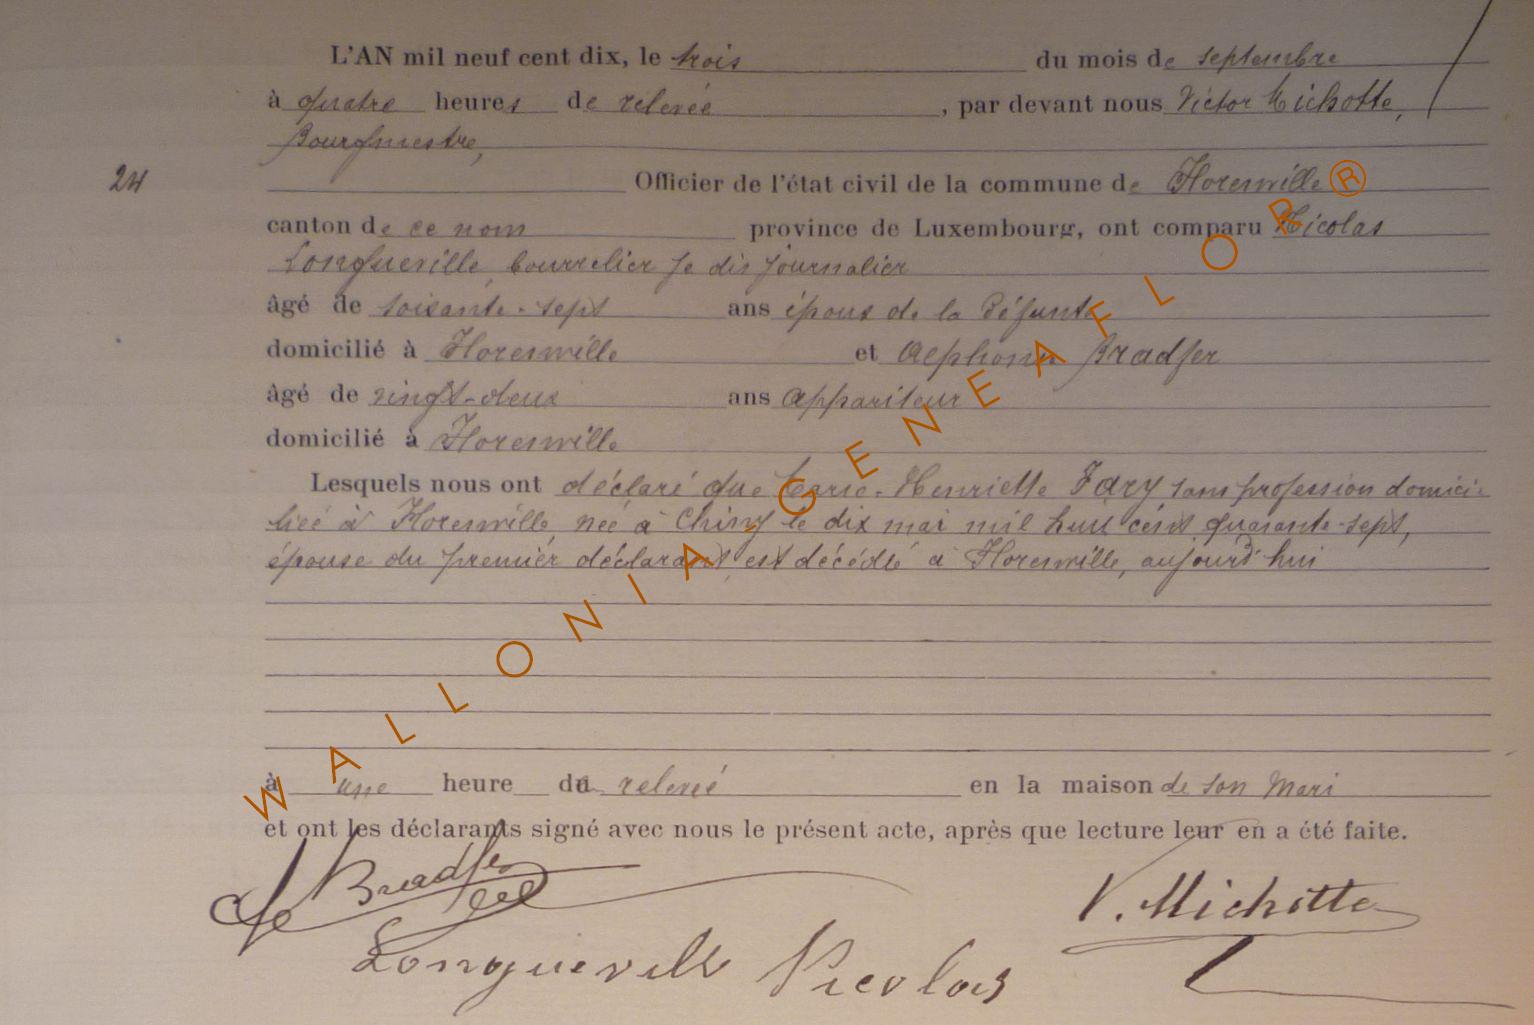 L'AN mil neuf cent dix, le trois du mois de septembre
à quatre heures de relevée, par devant nous Victor Michotte,
Bourgmestre,
24 Officier de l'état civil de la commune de Florenville
canton de ce nom province de Luxembourg, ont comparu Nicolas
Longueville, bourrelier je dis journalier
âgé de soixante-sept ans époux de la défunte
domicilié à Florenville et Alphonse Bradfer
âgé de vingt-deux ans appariteur
domicilié à Florenville
Lesquels nous ont déclaré que Marie-Henriette Fary sans profession domici-
liée à Florenville née à Chiny le dix mai mil huit cent quarante-sept,
épouse du premier déclarant, est décédée à Florenville, aujourd'hui
à une heure de relevée en la maison de son mari
et ont les déclarants signé avec nous le présent acte, après que lecture leur en a été faite.
Bradfer
V. Michotte
Longueville Nicolas
WALLONIA-GENEAFLOR®